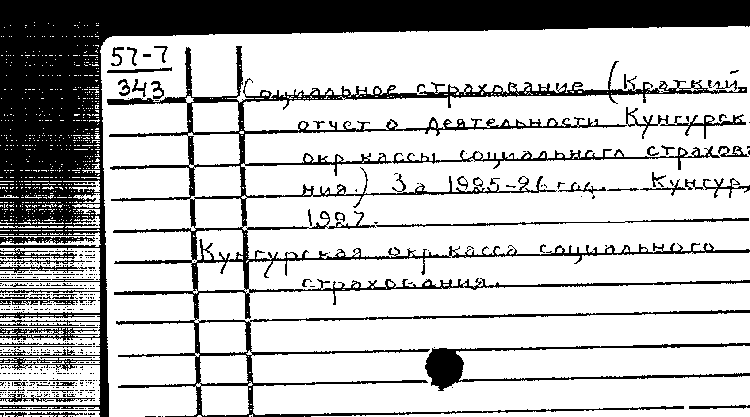 57-7
343
Социальное страхование (Краткий
отчет о деятельности Кунгурск.
окр. кассы социального страхова
ния.) За 1925-26 год. Кунгур,
1927.
Кунгурская окр. касса социального
страхования.